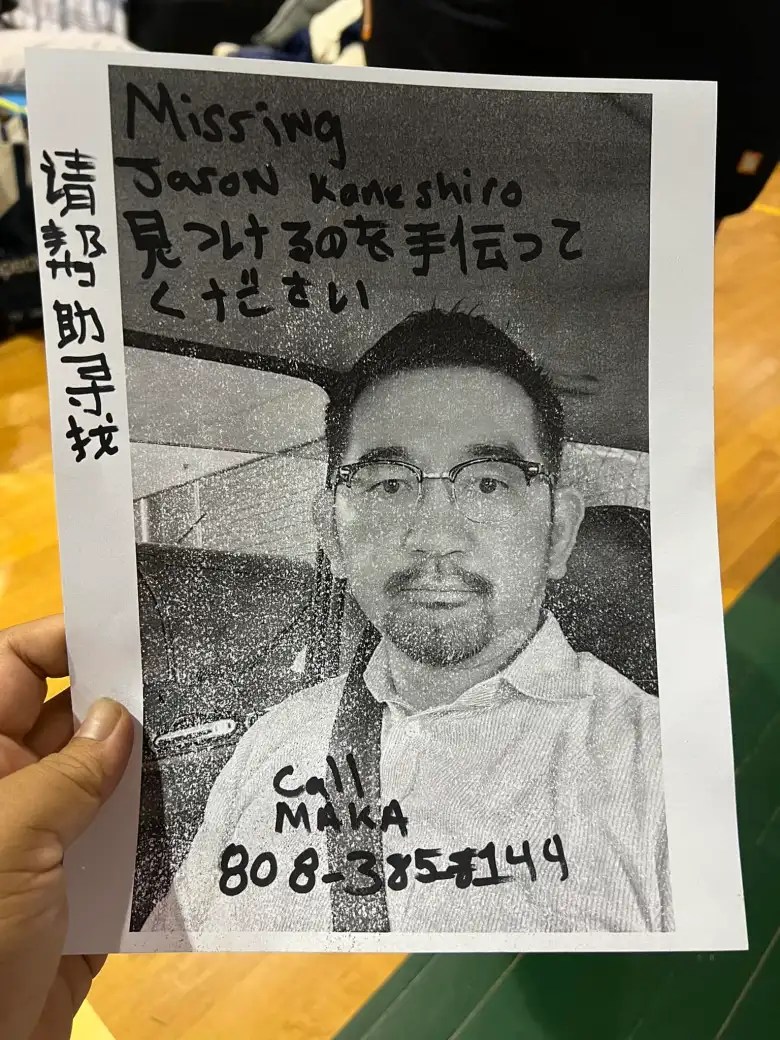 Missing
Jason Kaneshiro
見つけるのを手伝って
ください
请帮助寻找
Call
MAKA
808-385-8144